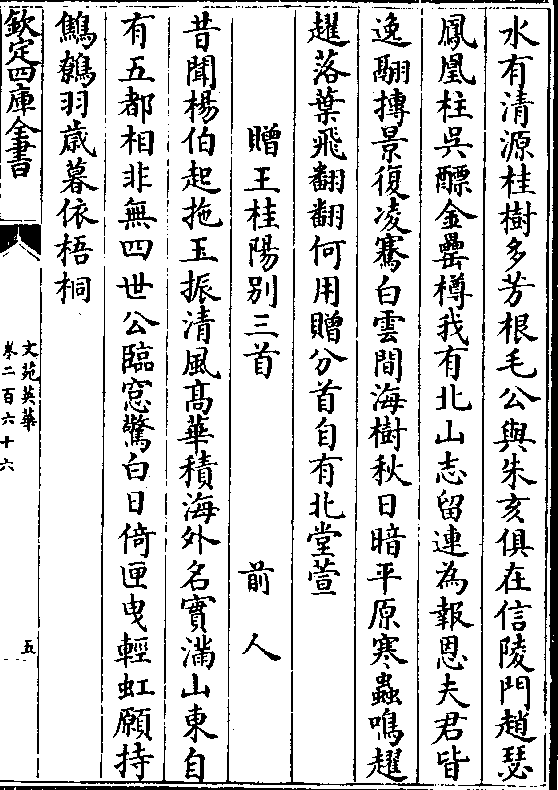 水有清源桂樹多芳根毛公與朱亥俱在信陵門趙瑟
鳳凰柱吳醥金罍樽我有北山志留連為報恩夫君皆
逸翮摶景復凌騫白雲間海樹秋日暗平原寒蟲鳴趯
趯落葉飛翻翻何用贈分首自有北堂萱
贈王桂陽別三首 前人
昔聞楊伯起拖玉振清風髙華積海外名實滿山東自
有五都相非無四世公臨窓驚白日倚匣曳輕虹願持
鷦鷯羽歳暮依梧桐
欽定四庫全書
文苑英華
卷二百六十六
五